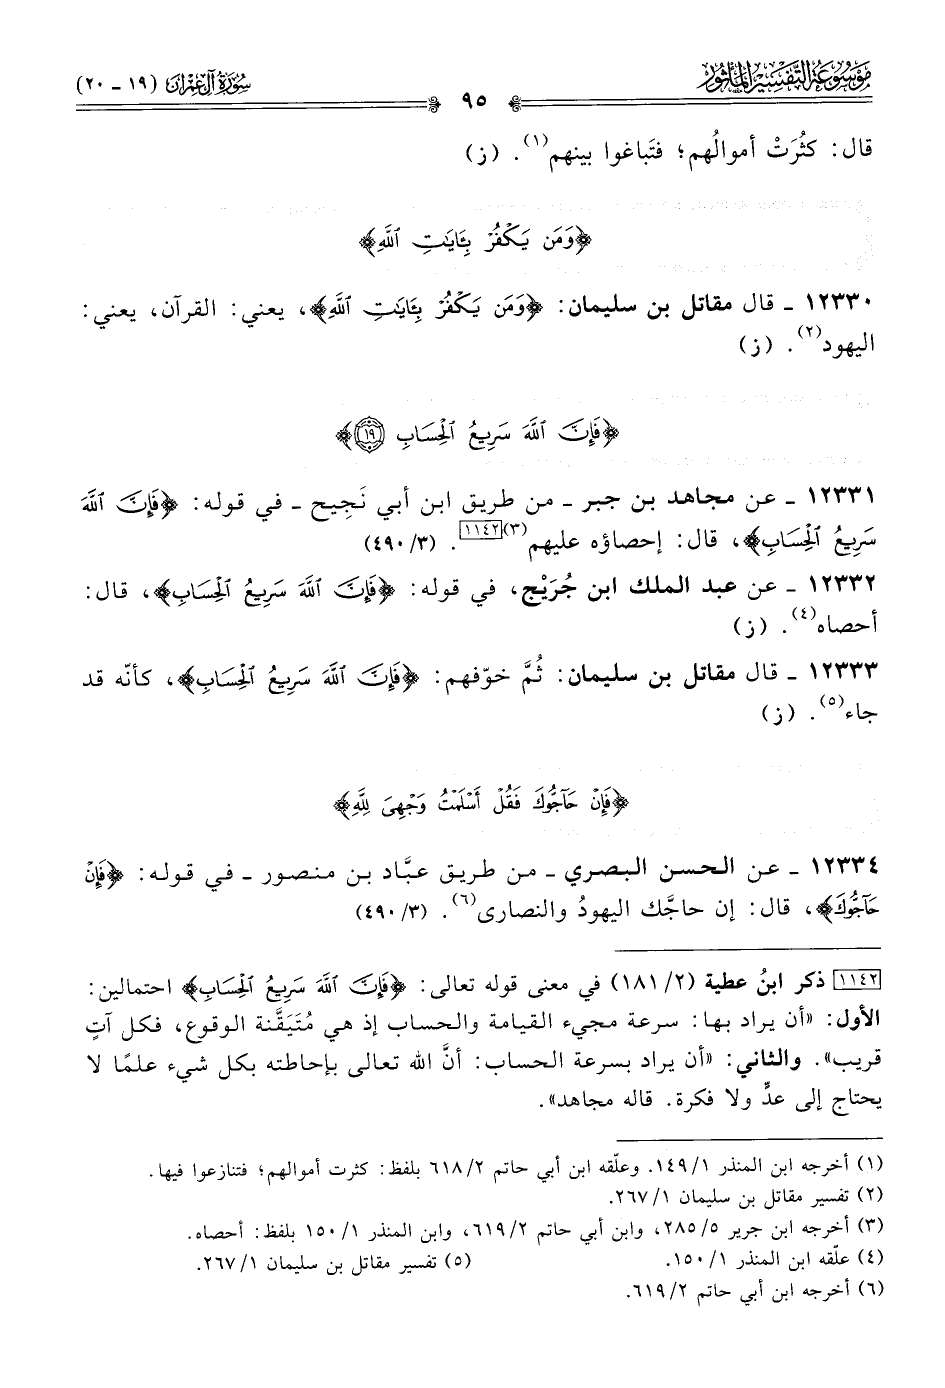 موسوعة التفسير المأثور
سورة آل عمران (١٩ - ٢٠)
٩٥
قال: كثُرَتْ أموالُهم؛ فتَباغوا بينهم(١). (ز)
﴿وَمَن يَكْفُرْ بِـَٔايَـٰتِ ٱللَّهِ﴾
١٢٣٣٠ - قال مقاتل بن سليمان: ﴿وَمَن يَكْفُرْ بِـَٔايَـٰتِ ٱللَّهِ﴾، يعني: القرآن، يعني:
اليهود(٢). (ز)
﴿فَإِنَّ ٱللَّهَ سَرِيعُ ٱلْحِسَابِ ١٩﴾
١٢٣٣١ - عن مجاهد بن جبر - من طريق ابن أبي نَجِيح - في قوله: ﴿فَإِنَّ ٱللَّهَ
سَرِيعُ ٱلْحِسَابِ﴾، قال: إحصاؤه عليهم(٣)[١١٤٢]. (٣/ ٤٩٠)
١٢٣٣٢ - عن عبد الملك ابن جُرَيْج، في قوله: ﴿فَإِنَّ ٱللَّهَ سَرِيعُ ٱلْحِسَابِ﴾، قال:
أحصاه(٤). (ز)
١٢٣٣٣ - قال مقاتل بن سليمان: ثُمَّ خوّفهم: ﴿فَإِنَّ ٱللَّهَ سَرِيعُ ٱلْحِسَابِ﴾، كأنّه قد
جاء(٥). (ز)
﴿فَإِنْ حَآجُّوكَ فَقُلْ أَسْلَمْتُ وَجْهِىَ لِلَّهِ﴾
١٢٣٣٤ - عن الحسن البصري - من طريق عبَّاد بن منصور - في قوله: ﴿فَإِنْ
حَآجُّوكَ﴾، قال: إن حاجَّك اليهودُ والنصارى(٦). (٣/ ٤٩٠)
[١١٤٢] ذكر ابنُ عطية (٢/ ١٨١) في معنى قوله تعالى: ﴿فَإِنَّ ٱللَّهَ سَرِيعُ ٱلْحِسَابِ﴾ احتمالين:
الأول: «أن يراد بها: سرعة مجيء القيامة والحساب إذ هي مُتَيَقَّنة الوقوع، فكل آتٍ
قريب». والثاني: «أن يراد بسرعة الحساب: أنَّ الله تعالى بإحاطته بكل شيء علمًا لا
يحتاج إلى عدٍّ ولا فكرة. قاله مجاهد».
(١) أخرجه ابن المنذر ١/ ١٤٩. وعلّقه ابن أبي حاتم ٢/ ٦١٨ بلفظ: كثرت أموالهم؛ فتنازعوا فيها.
(٢) تفسير مقاتل بن سليمان ١/ ٢٦٧.
(٣) أخرجه ابن جرير ٥/ ٢٨٥، وابن أبي حاتم ٢/ ٦١٩، وابن المنذر ١/ ١٥٠ بلفظ: أحصاه.
(٤) علّقه ابن المنذر ١/ ١٥٠. (٥) تفسير مقاتل بن سليمان ١/ ٢٦٧.
(٦) أخرجه ابن أبي حاتم ٢/ ٦١٩.